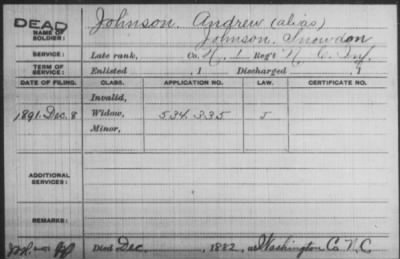 DEAD
NAME OF SOLDIER:
Johnson, Andrew (alias)
Johnson, Snowdon
SERVICE: Late rank, Co. H, 1 Reg't N. C. Inf.
TERM OF SERVICE: Enlisted , 1 Discharged , 1
DATE OF FILING. CLASS. APPLICATION NO. LAW. CERTIFICATE NO.
Invalid,
1891. Dec. 8 Widow, 534.335 J
Minor,
ADDITIONAL SERVICES:
REMARKS:
Died Dec , 1882, at Washington Co N.C